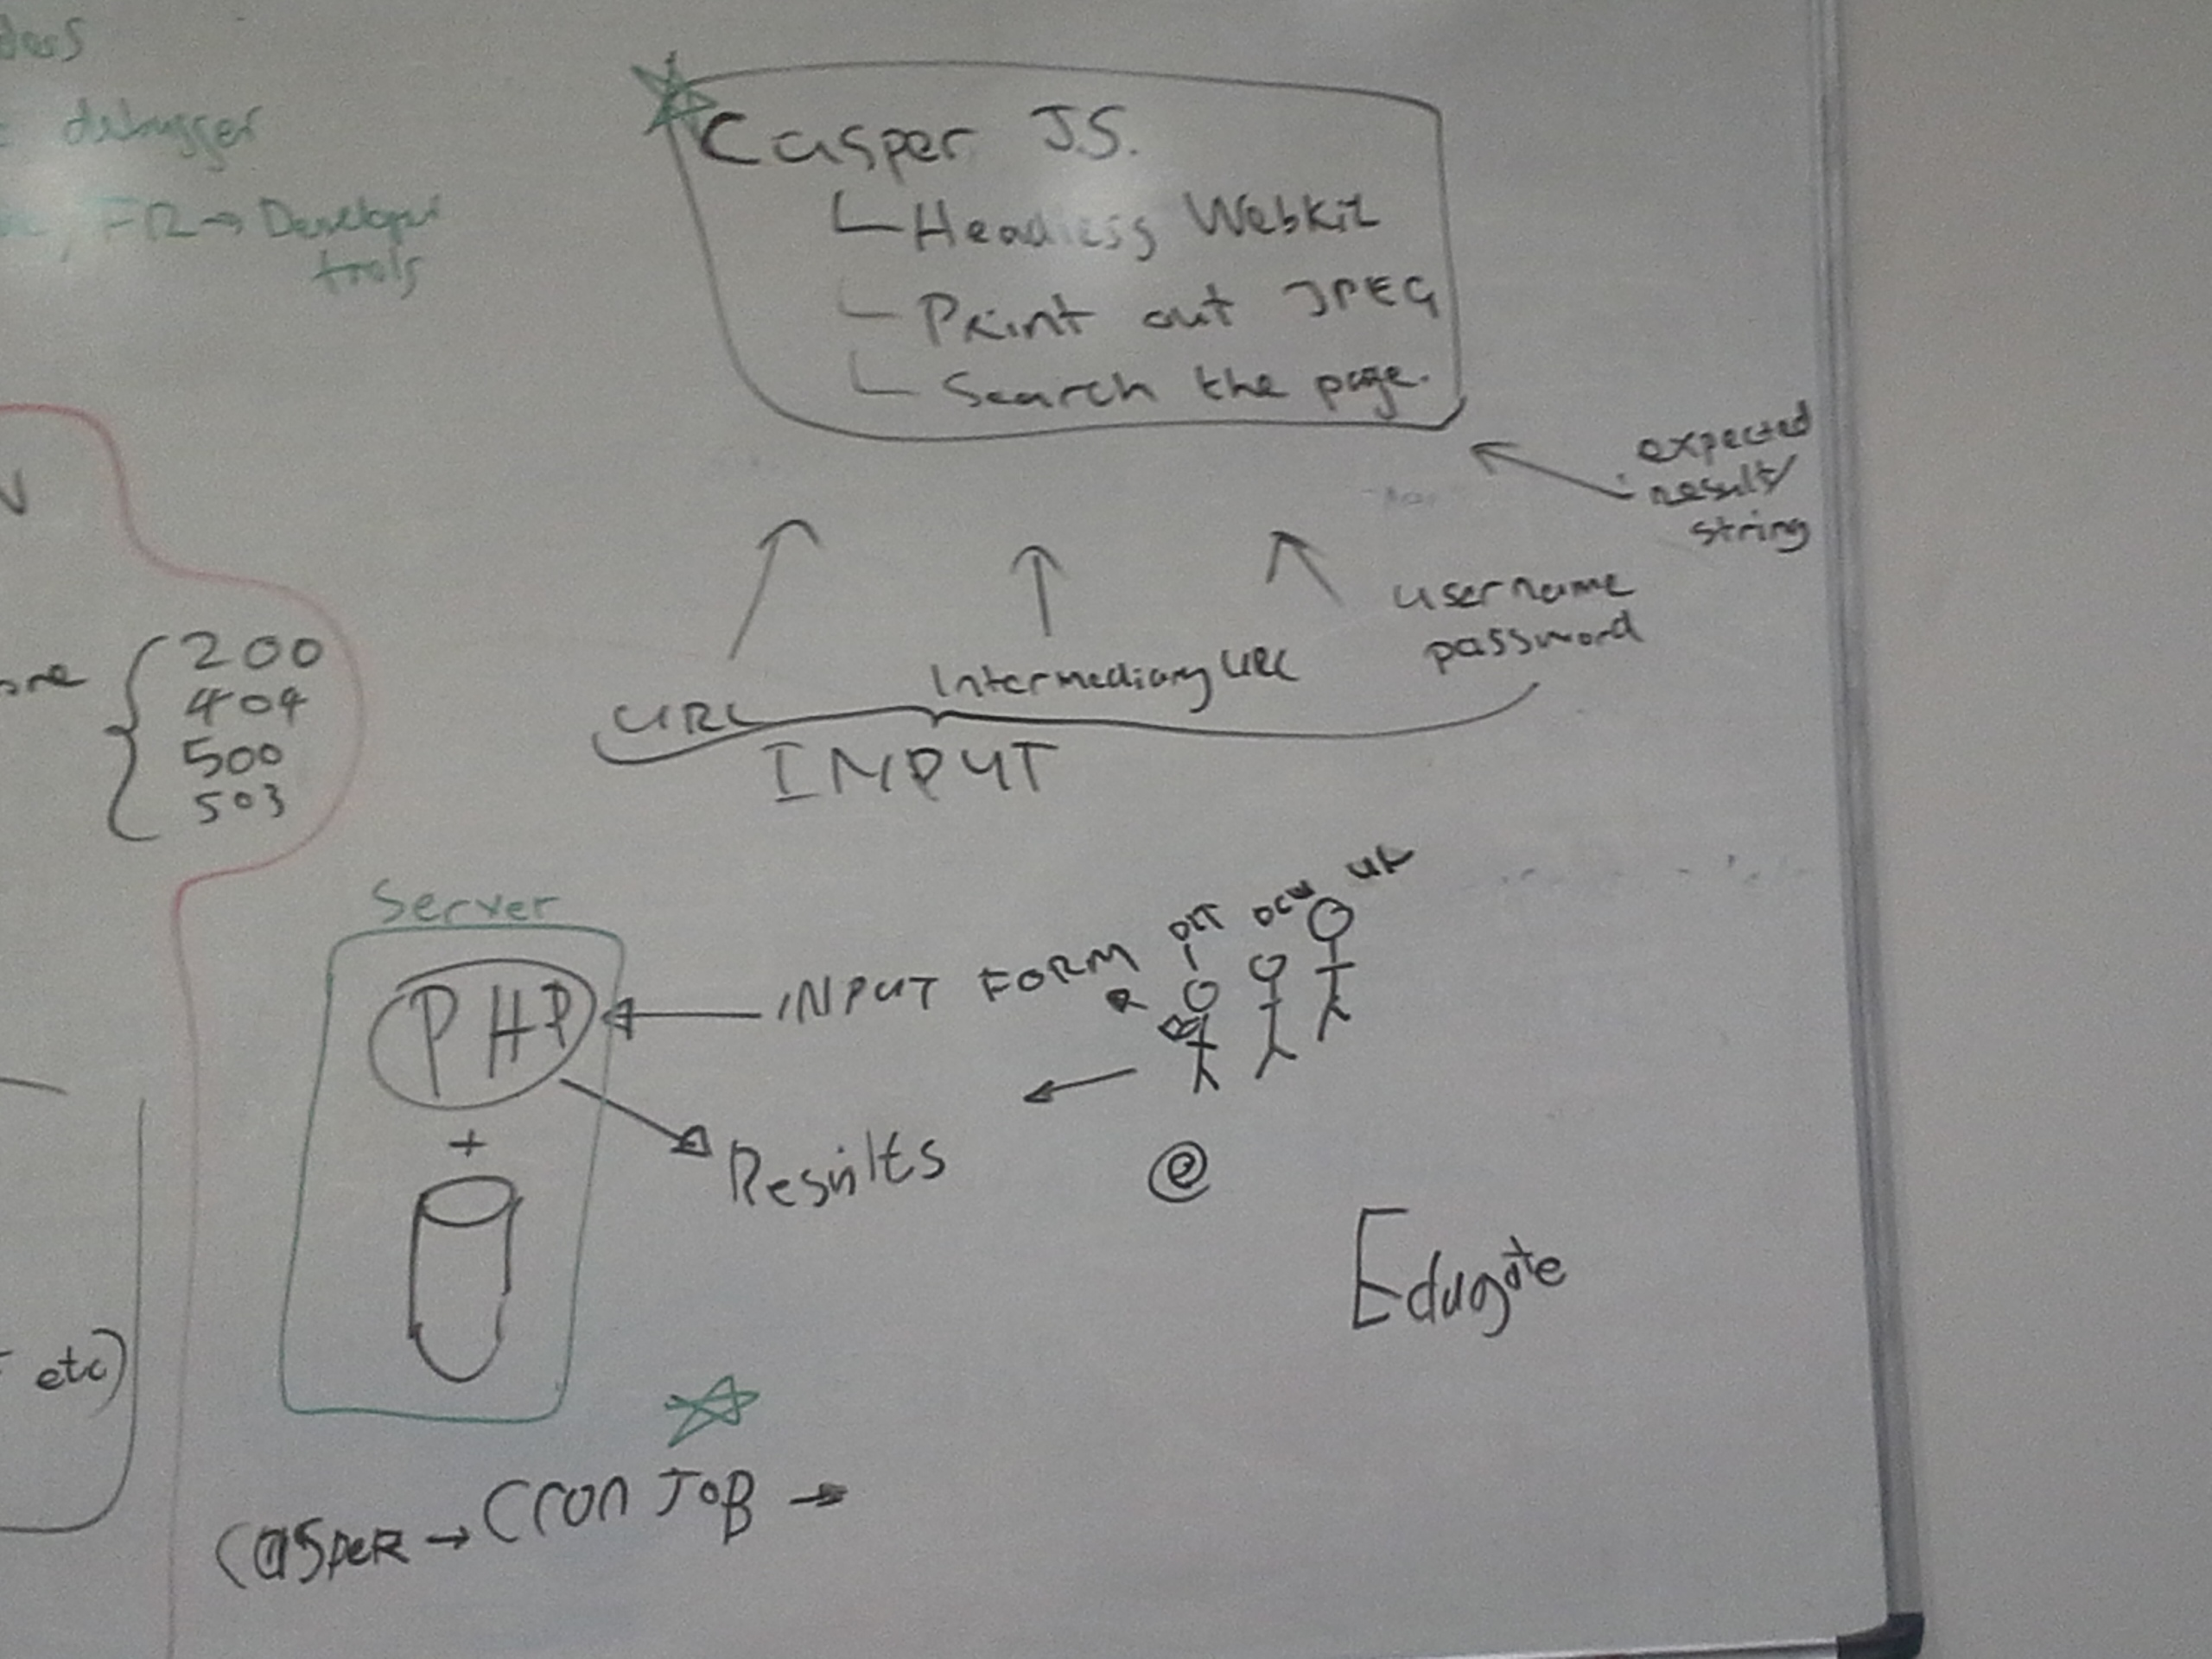 debugger
FR → Developer
tools
Casper J.S.
Headless Webkit
Print out JPEG
Search the page.
expected
result/
string
username
password
Intermediary URL
URL
INPUT
200
404
500
503
Server
PHP
+
INPUT FORM
DIT DCU
Results
@
Edugate
etc)
Casper → Cron JOB →